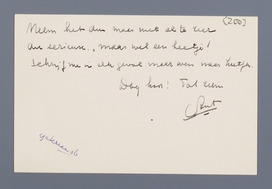 (200)
Neem het dus maar niet al te zeer
au serieux, maar wel een beetje!
Schrijf me in elk geval maar eens naar
Dag hoor! Tot ziens